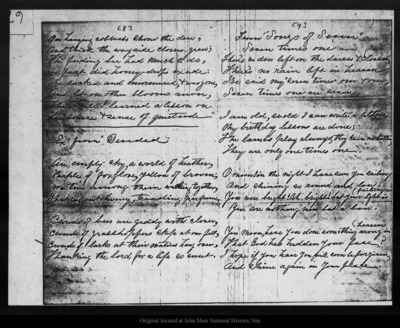 (8)
On hanging cobwebs shone the dew,
And thick the wayside clover grew;
The feeding bee had much to do,
So fast did honey-drops exude:
She sucked and murmured, & was gone,
And lit on other blooms anon,
The while I learned a lesson on
"& sense of quietude"
from "Divided"
An empty sky, a world of heather,
Purple of foxglove, yellow of broom;
We two among them wading together,
Shaking out honey, treading perfume.
Crowds of bees are giddy with clover,
Crowds of grasshoppers skip at our feet,
Crowds of larks at their matins hang over,
Thanking the Lord for a life so sweet.
(9)
From "Songs of Seven"
Seven times one
There's no dew left on the daisies & clover,
There's no rain left in heaven:
I've said my "seven times" over & over,
Seven times one are seven.
I am old, so old I can write a letter;
My birthday lessons are done;
The lambs play always, they know no better,
They are only one times one.
O moon! in the night I have seen you sailing
And shining so round and low;
You were bright! Ah bright! but your light is failing
You are nothing now but a bow.
You Moon, have you done something wrong in heaven
That God has hidden your face?
I hope if you have you will soon be forgiven,
And shine again in your place.
Original located at John Muir National Historic Site